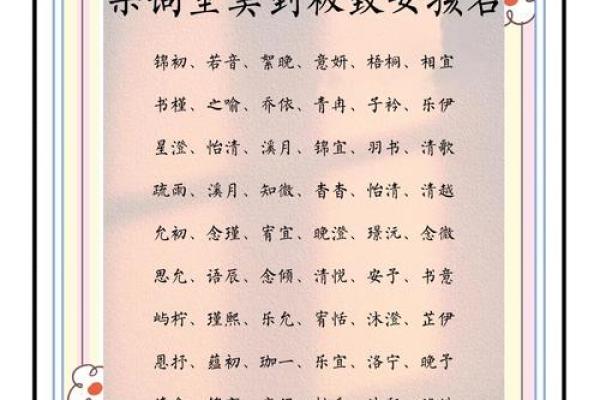 宋词里美到极致女孩名
锦初、若音、絮晚、意妍、梧桐、相宜
书槿、之喻、乔依、青冉、子衿、乐伊
星澄、怡清、溪月、锦宜、羽书、清歌
疏雨、溪月、知微、杳杳、怡清、清越
允初、念瑾、宥宜、晚澄、璟沅、念微
思允、语辰、念倾、清悦、安予、书意
屿柠、瑾熙、乐允、宥恬、沐澄、芷伊
恩抒、蕴初、珈一、乐宜、洛宁、晚予